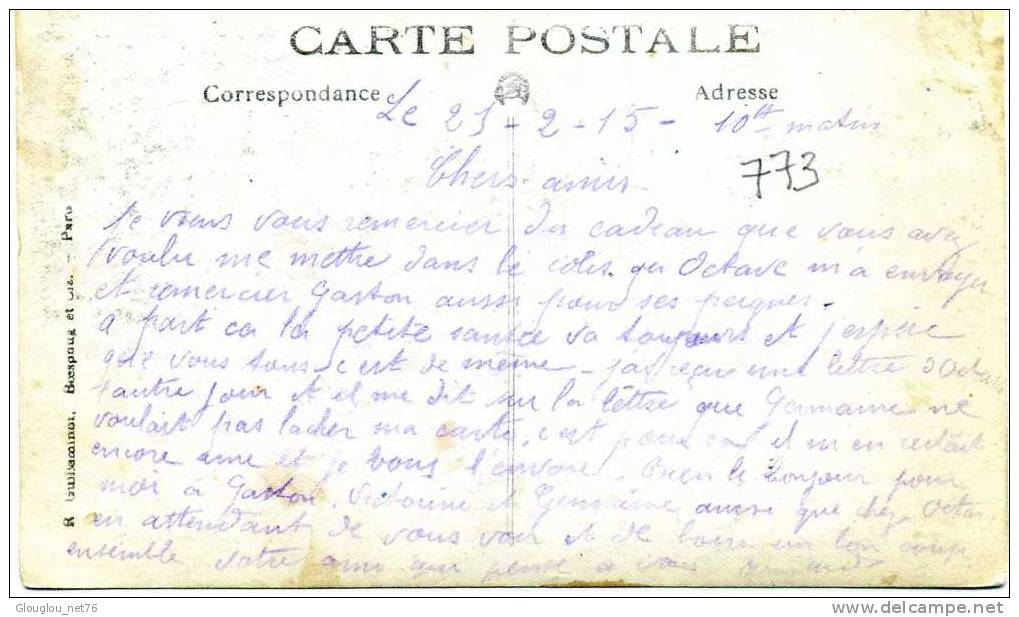 CARTE POSTALE
Correspondance
Adresse
Le 25-2-15- 10H matin
773
Chers amis
Je viens vous remercier du cadeau que vous avez
voulu me mettre dans le colis qu Octave m a envoyer
et remercier Gaston aussi pour ses peignes.
a part ca la petite santée va toujours et j espère
que vous tous c est de même - j ai reçu une lettre d Octave
l autre jour et il me dit sur la lettre que Germaine ne
voulait pas lacher ma carte, c est pour ca il m en restait
encore une et je vous l envoie. Bien le bonjour pour
moi a Gaston, Victorine et Germaine aussi que chez Octav
en attendant de vous voir et de boire un bon coup
ensemble votre ami qui pense a vous
R Guilleminot, Boespflug et Cie. - Paris
Glouglou_net76
http://www.delcampe.net